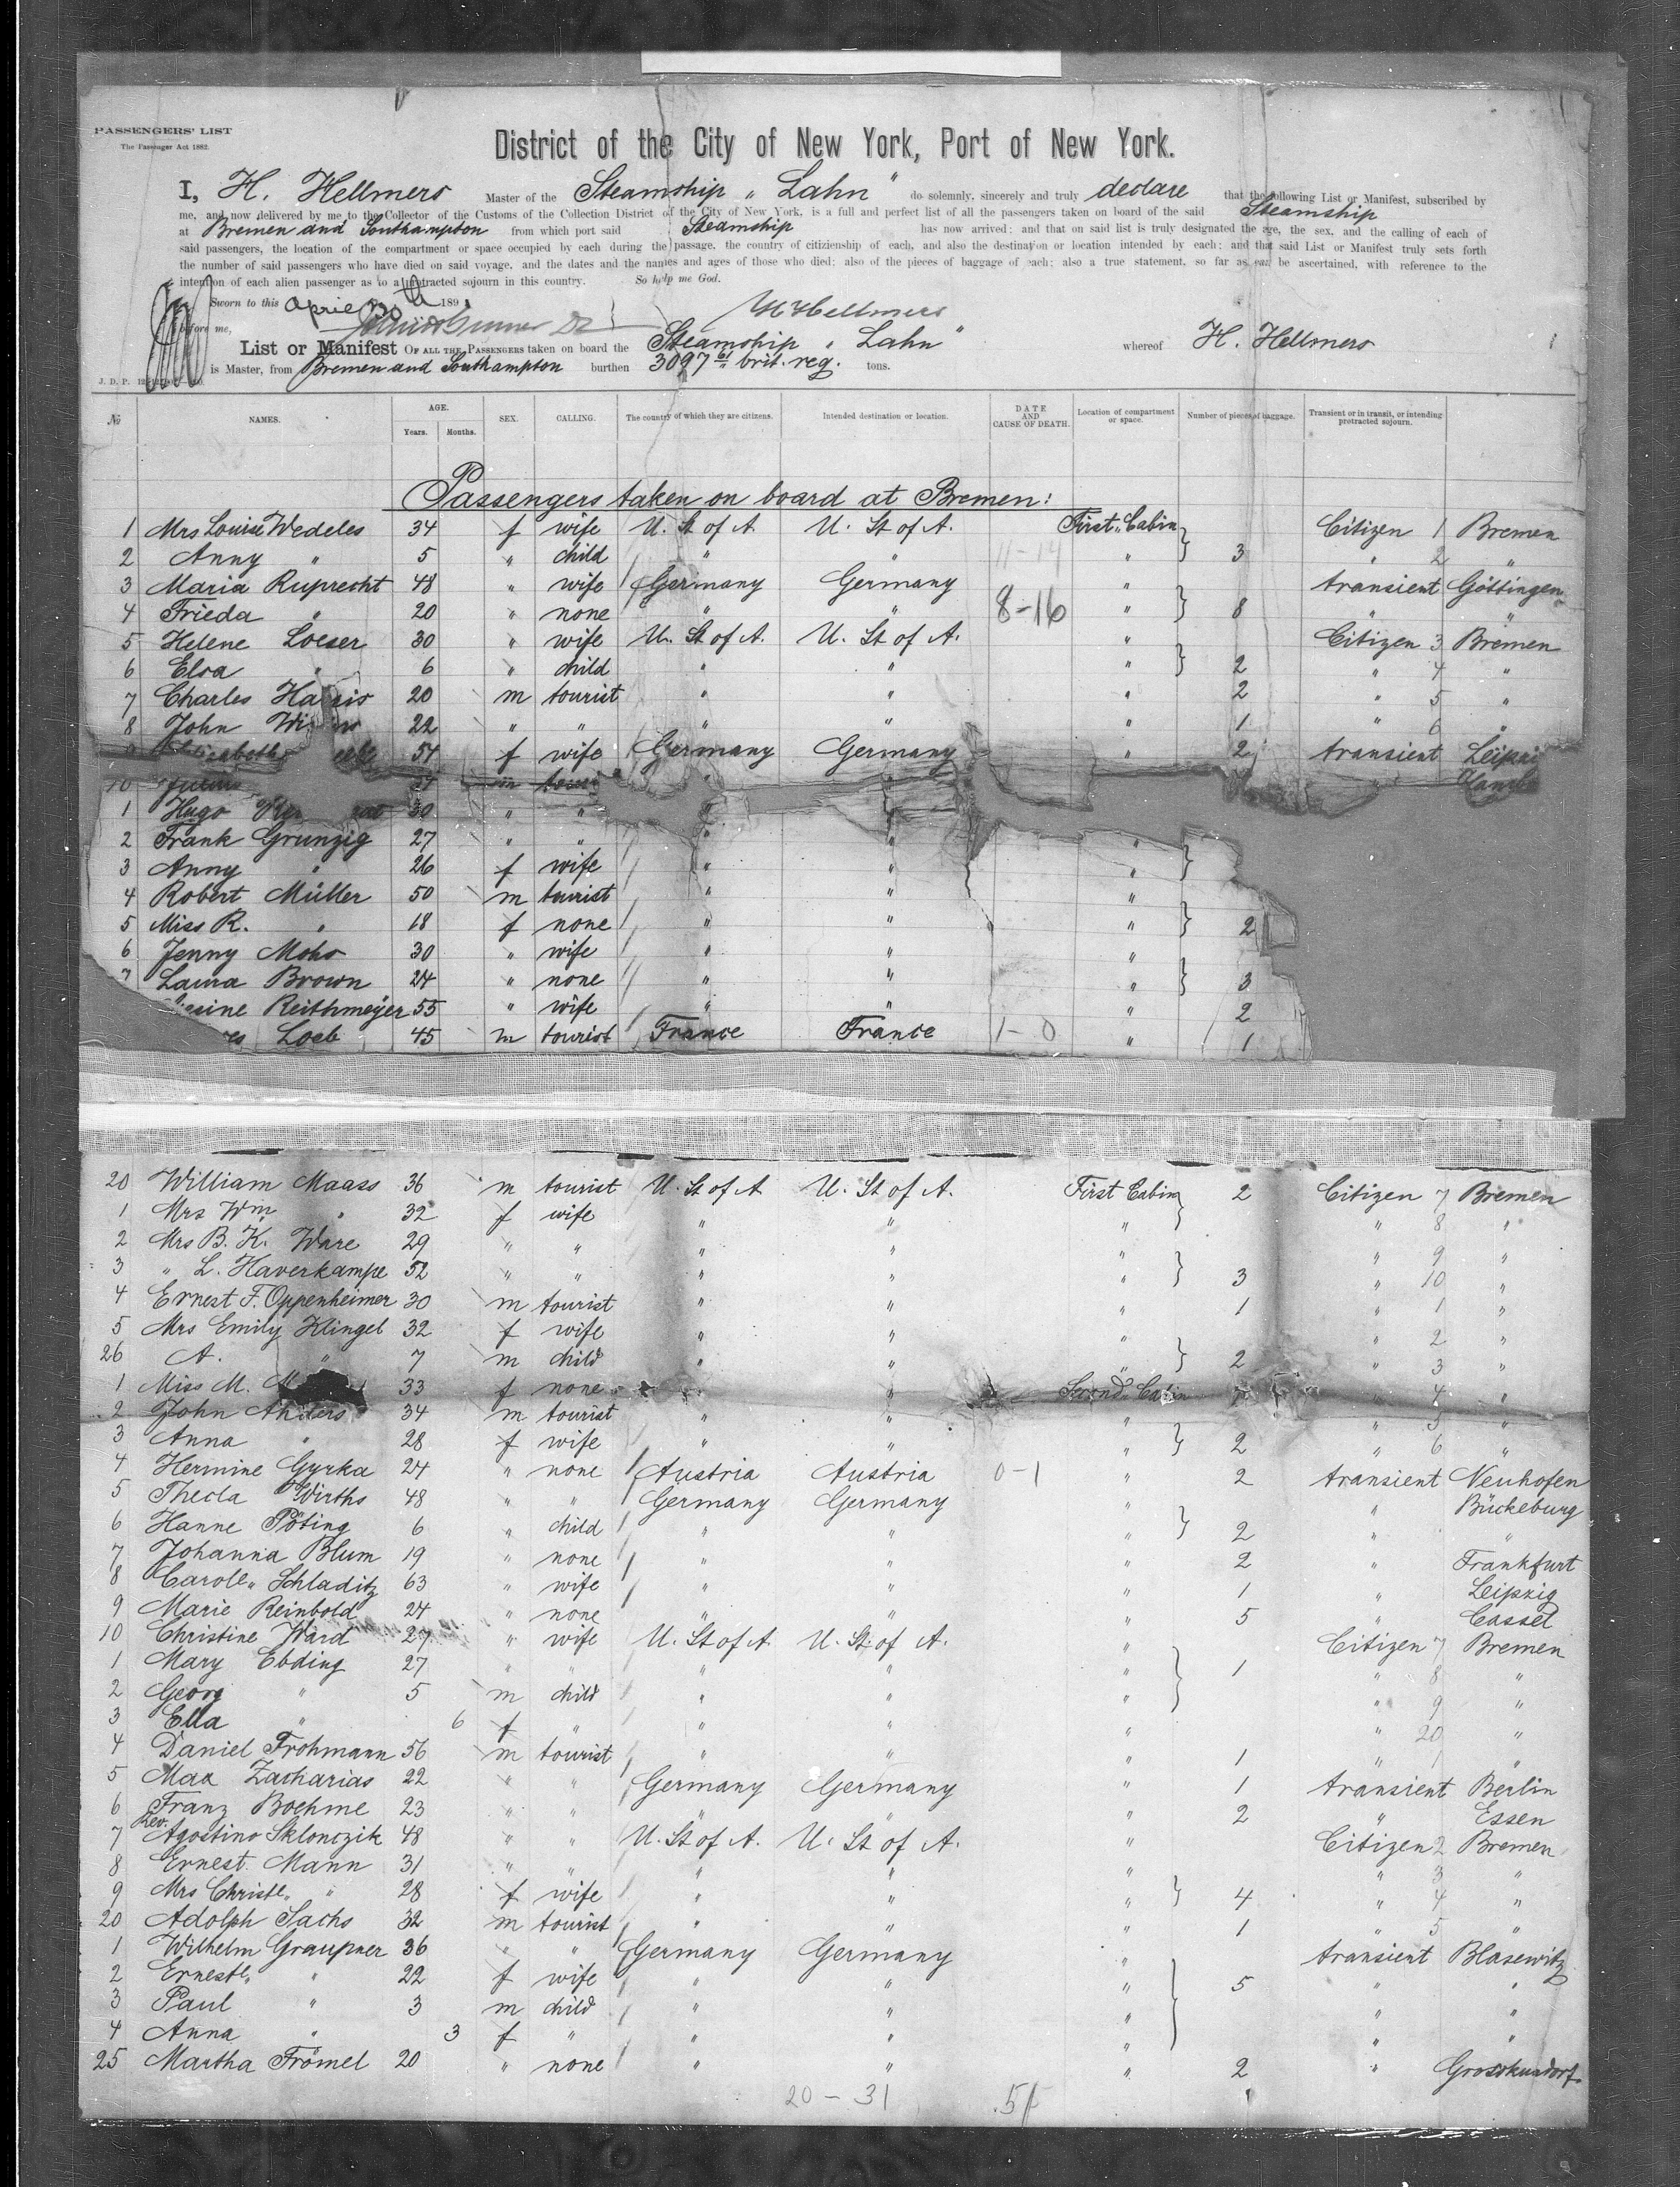 PASSENGERS' LIST
The Passenger Act 1882.
District of the City of New York, Port of New York.
I, H. Hellmers Master of the Steamship „ Lahn " do solemnly, sincerely and truly declare that the following List or Manifest, subscribed by
me, and now delivered by me to the Collector of the Customs of the Collection District of the City of New York, is a full and perfect list of all the passengers taken on board of the said Steamship
at Bremen and Southampton from which port said Steamship has now arrived; and that on said list is truly designated the age, the sex, and the calling of each of
said passengers, the location of the compartment or space occupied by each during the passage, the country of citizienship of each, and also the destination or location intended by each; and that said List or Manifest truly sets forth
the number of said passengers who have died on said voyage, and the dates and the names and ages of those who died; also of the pieces of baggage of each; also a true statement, so far as can be ascertained, with reference to the
intention of each alien passenger as to a protracted sojourn in this country. So help me God.
Sworn to this April 20th 189
before me, H Hellmers
List or Manifest OF ALL THE PASSENGERS taken on board the Steamship „ Lahn " whereof H. Hellmers
is Master, from Bremen and Southampton burthen 3097 61 brit. reg. tons.
J. D. P.
№ NAMES. AGE. Years. Months. SEX. CALLING. The country of which they are citizens. Intended destination or location. DATE AND CAUSE OF DEATH. Location of compartment or space. Number of pieces of baggage. Transient or in transit, or intending protracted sojourn.
Passengers taken on board at Bremen:
1 Mrs Louise Wedeles 34 f wife U. St of A. U. St of A. First Cabin Citizen 1 Bremen
2 Anny " 5 " child " " 11-14 " 3 " 2 "
3 Maria Ruprecht 48 " wife Germany Germany " transient Göttingen
4 Frieda " 20 " none " " 8-16 " 8 " "
5 Helene Loeser 30 " wife U. St of A. U. St of A. " Citizen 3 Bremen
6 Elsa " 6 " child " " " 2 " 4 "
7 Charles Harris 20 m tourist " " " 2 " 5 "
8 John 22 " " " " " 1 " 6 "
54 f wife Germany Germany " 2 transient
10 m
1 Hugo 30 " " "
2 Frank Grunzig 27 " " " " "
3 Anny " 26 f wife " " "
4 Robert Müller 50 m tourist " " "
5 Miss R. " 18 f none " " " 2
6 Jenny Mohs 30 " wife " " "
7 Laura Brown 24 " none " " " 3
Reithmeyer 55 " wife " " " 2
Loeb 45 m tourist France France 1-0 " 1
20 William Maass 36 m tourist U. St of A U. St of A. First Cabin 2 Citizen 7 Bremen
1 Mrs Wm " 32 f wife " " " " 8 "
2 Mrs B. K. Ware 29 " " " " " " 9 "
3 " L. Haverkampe 52 " " " " " 3 " 10 "
4 Ernest F. Oppenheimer 30 m tourist " " " 1 " 1 "
5 Mrs Emily Klingel 32 f wife " " " " 2 "
26 A. " 7 m child " " " 2 " 3 "
1 Miss M. 33 f none " " Second Cabin " 4 "
2 John Ahlers 34 m tourist " " " " 5 "
3 Anna " 28 f wife " " " 2 " 6 "
4 Hermine Gyrka 24 " none Austria Austria 0-1 " 2 transient Neuhofen
5 Thecla Wirths 48 " " Germany Germany " " Bückeburg
6 Hanne Pöting 6 " child " " " 2 " "
7 Johanna Blum 19 " none " " " 2 " Frankfurt
8 Carole„ Schladitz 63 " wife " " " 1 " Leipzig
9 Marie Reinbold 24 " none " " " 5 " Cassel
10 Christine Ward 27 " wife U. St of A. U. St. of A. " Citizen 7 Bremen
1 Mary Ebding 27 " " " " " 1 " 8 "
2 Georg " 5 m child " " " " 9 "
3 Ella " 6 f " " " " " 20 "
4 Daniel Frohmann 56 m tourist " " " 1 " 1 "
5 Max Zacharias 22 " " Germany Germany " 1 transient Berlin
6 Franz Boehme 23 " " " " " 2 " Essen
7 Rev. Agostino Sklonczik 48 " " U. St of A. U. St of A. " Citizen 2 Bremen
8 Ernest Mann 31 " " " " " " 3 "
9 Mrs Christe„ " 28 f wife " " " 4 " 4 "
20 Adolph Sachs 32 m tourist " " " 1 " 5 "
1 Wilhelm Graupner 36 " " Germany Germany " transient Blasewitz
2 Erneste„ " 22 f wife " " " 5 " "
3 Paul " 3 m child " " " " "
4 Anna " 3 f " " " " " "
25 Martha Frömel 20 " none " " " 2 " Grosskundorf
20 - 31